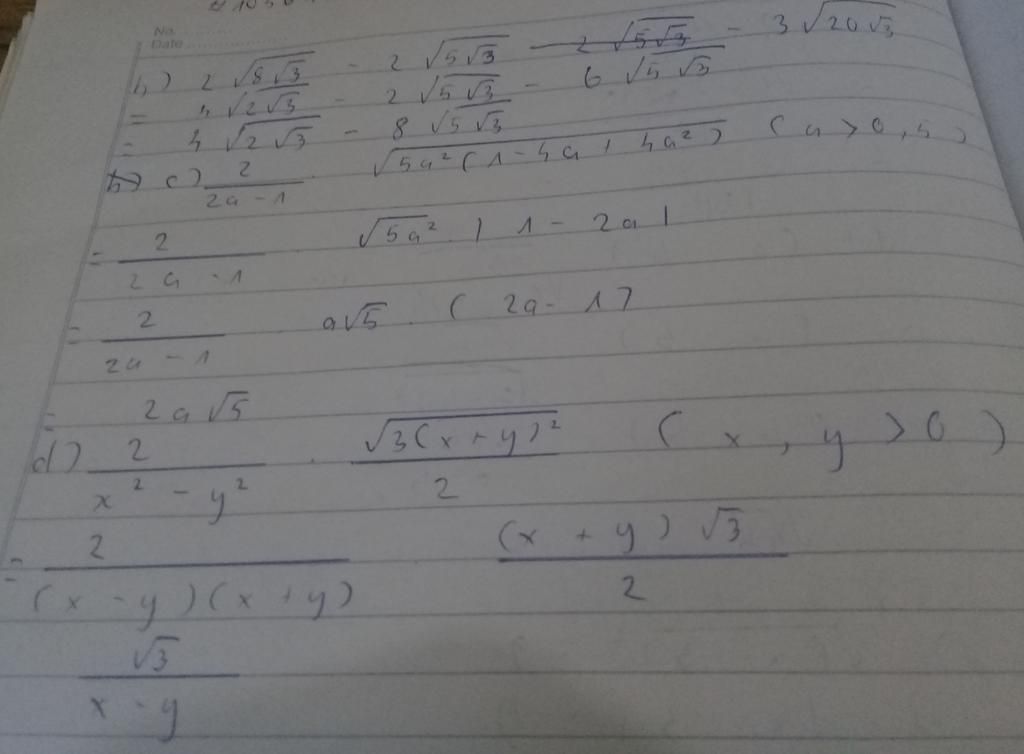 No. ............
Date ....................
b) 2√(8√3) - 2√(5√3) - 3√(20√3)
= 4√(2√3) - 2√(5√3) - 6√(5√3)
= 4√(2√3) - 8√(5√3)
c) 2/(2a - 1) . √(5a²(1 - 4a + 4a²)) (a > 0,5)
= 2/(2a - 1) √5a² . |1 - 2a|
= 2/(2a - 1) a√5 . (2a - 1)
= 2a√5
d) 2/(x² - y²) . √(3(x + y)²)/2 (x, y > 0)
= 2/((x - y)(x + y)) (x + y)√3/2
√3/(x - y)